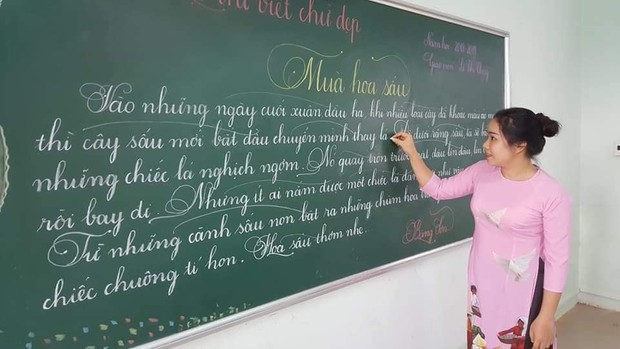 viết chữ đẹp
Năm học
Mùa hoa sấu
Vào những ngày cuối xuân đầu hạ, khi nhiều loài cây đã khoác màu áo
thì cây sấu mới bắt đầu chuyển mình thay lá. dưới rặng sấu, ta sẽ
những chiếc lá nghịch ngợm. Nó quay tròn trước mặt, đậu lên đầu, lên
rồi bay đi. Nhưng ít ai nắm được một chiếc lá đang rơi như
Từ những cành sấu non bật ra những chùm hoa
chiếc chuông tí hon. Hoa sấu thơm nhẹ.